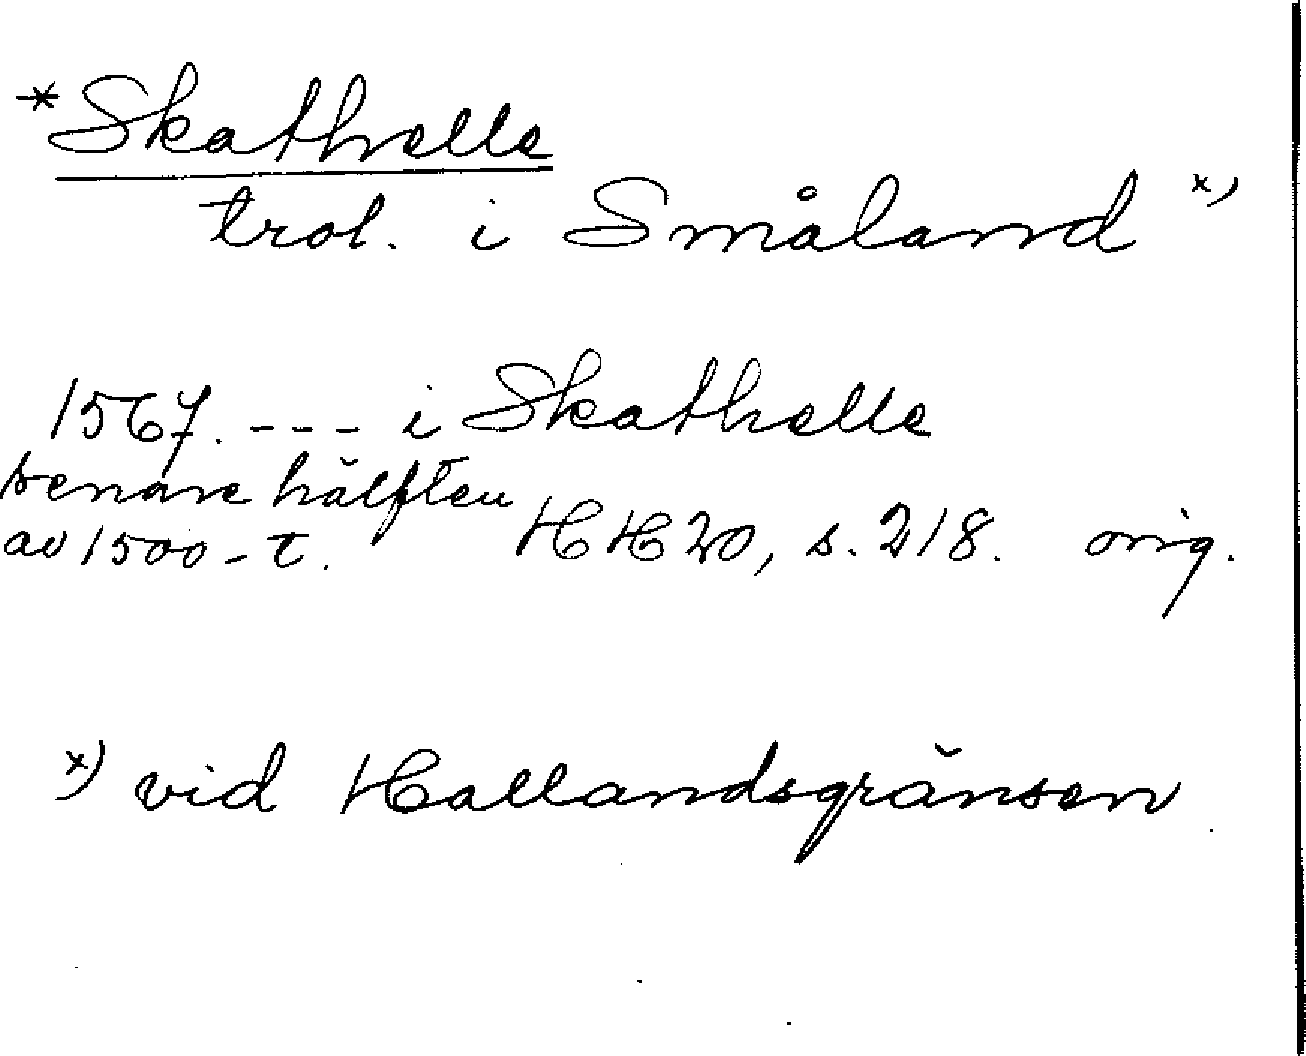 *Skathelle
trol. i Småland x)
1567. --- i Skathelle
senare hälften
av 1500-t. HH 20, s. 218. orig.
x) vid Hallandsgränsen